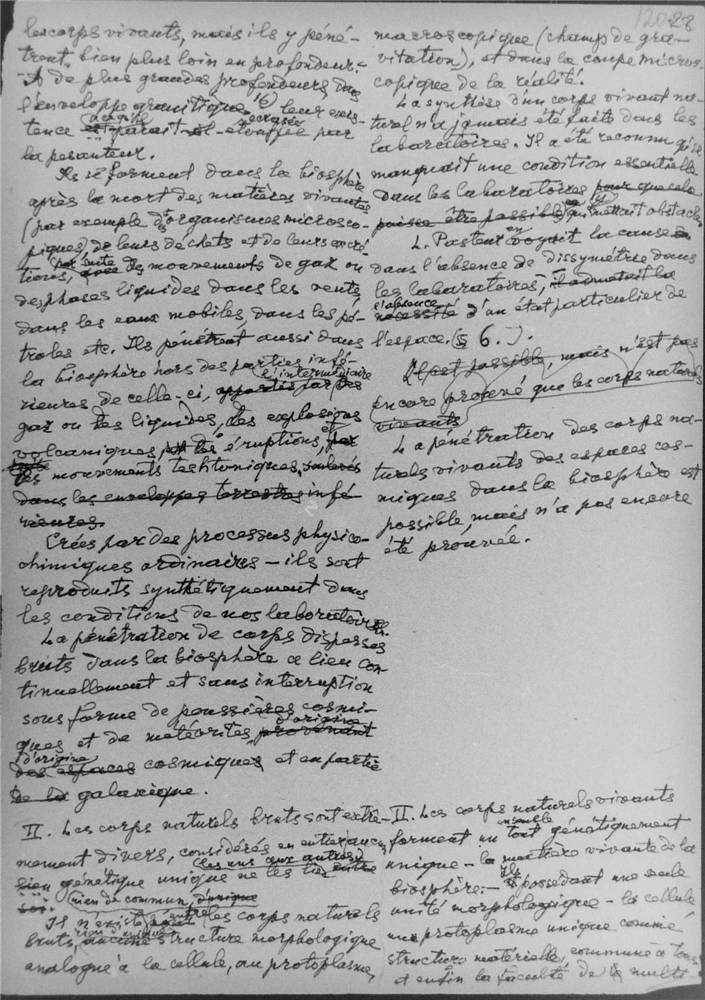 120 28
les corps vivants, mais ils y péné-
trent bien plus loin en profondeur.
A de plus grandes profondeurs dans
l'enveloppe granitique leur exis-
tence parait étouffée par
la pesanteur.
Ils se forment dans la biosphère
après la mort des matières vivantes
(par exemple d'organismes microsco-
piques) de leurs déchets et de leurs excré-
tions, par suite des mouvements de gaz ou
des phases liquides dans les vents
dans les eaux mobiles, dans les pé-
troles etc. Ils pénétrent aussi dans
la biosphère hors des parties infé-
l'intermédiaire
rieures de celle-ci, apportés par des
gaz ou des liquides, des explosions
volcaniques, des éruptions, et
des mouvements techtoniques,
dans les enveloppes terrestres infé-
rieures.
Crées par des processus physico-
chimiques ordinaires – ils sont
reproduits synthétiquement dans
les conditions de nos laboratoires.
La pénétration de corps dispersés
bruts dans la biosphère a lieu con-
tinuellement et sans interruption
sous forme de poussières cosmi-
d'origine
ques et de météorites provenant
d'origine
des espaces cosmiques et en partie
de la galaxique.
II. Les corps naturels bruts sont extre-
mement divers, considérés en entier, aucun
les uns aux autres
lien génétique unique ne les lie entre
rien de commun, d'unique
Il n'existe entre les corps naturels
bruts, aucune structure morphologique
analogue à la cellule, au protoplasme,
macroscopique (champs de gra-
vitation), et dans la coupe micros-
copique de la réalité.
La synthèse d'un corps vivant na-
turel n'a jamais été faite dans les
laboratoires. Il a été reconnu qu'il
manquait une condition essentielle
dans les laboratoires pour que cela
puisse être possible qui mettait obstacle
L. Pasteur en voyait la cause
dans l'absence de dissymétrie dans
les laboratoires, il admettait la
l'absence
nécessité d'un état particulier de
l'espace. (§ 6.).
Il est possible, mais n'est pas
encore prouvé que les corps naturels
vivants
La pénétration des corps na-
turels vivants des espaces cos-
miques dans la biosphère est
possible, mais n'a pas encore
été prouvée.
II. Les corps naturels vivants
ensemble
forment un tout génétiquement
unique – la matière vivante de la
biosphère: – Ils possedant une seule
unité morphologique – la cellule
un protoplasme unique comme
structure matérielle, commune à tous
et enfin la faculté de multi-